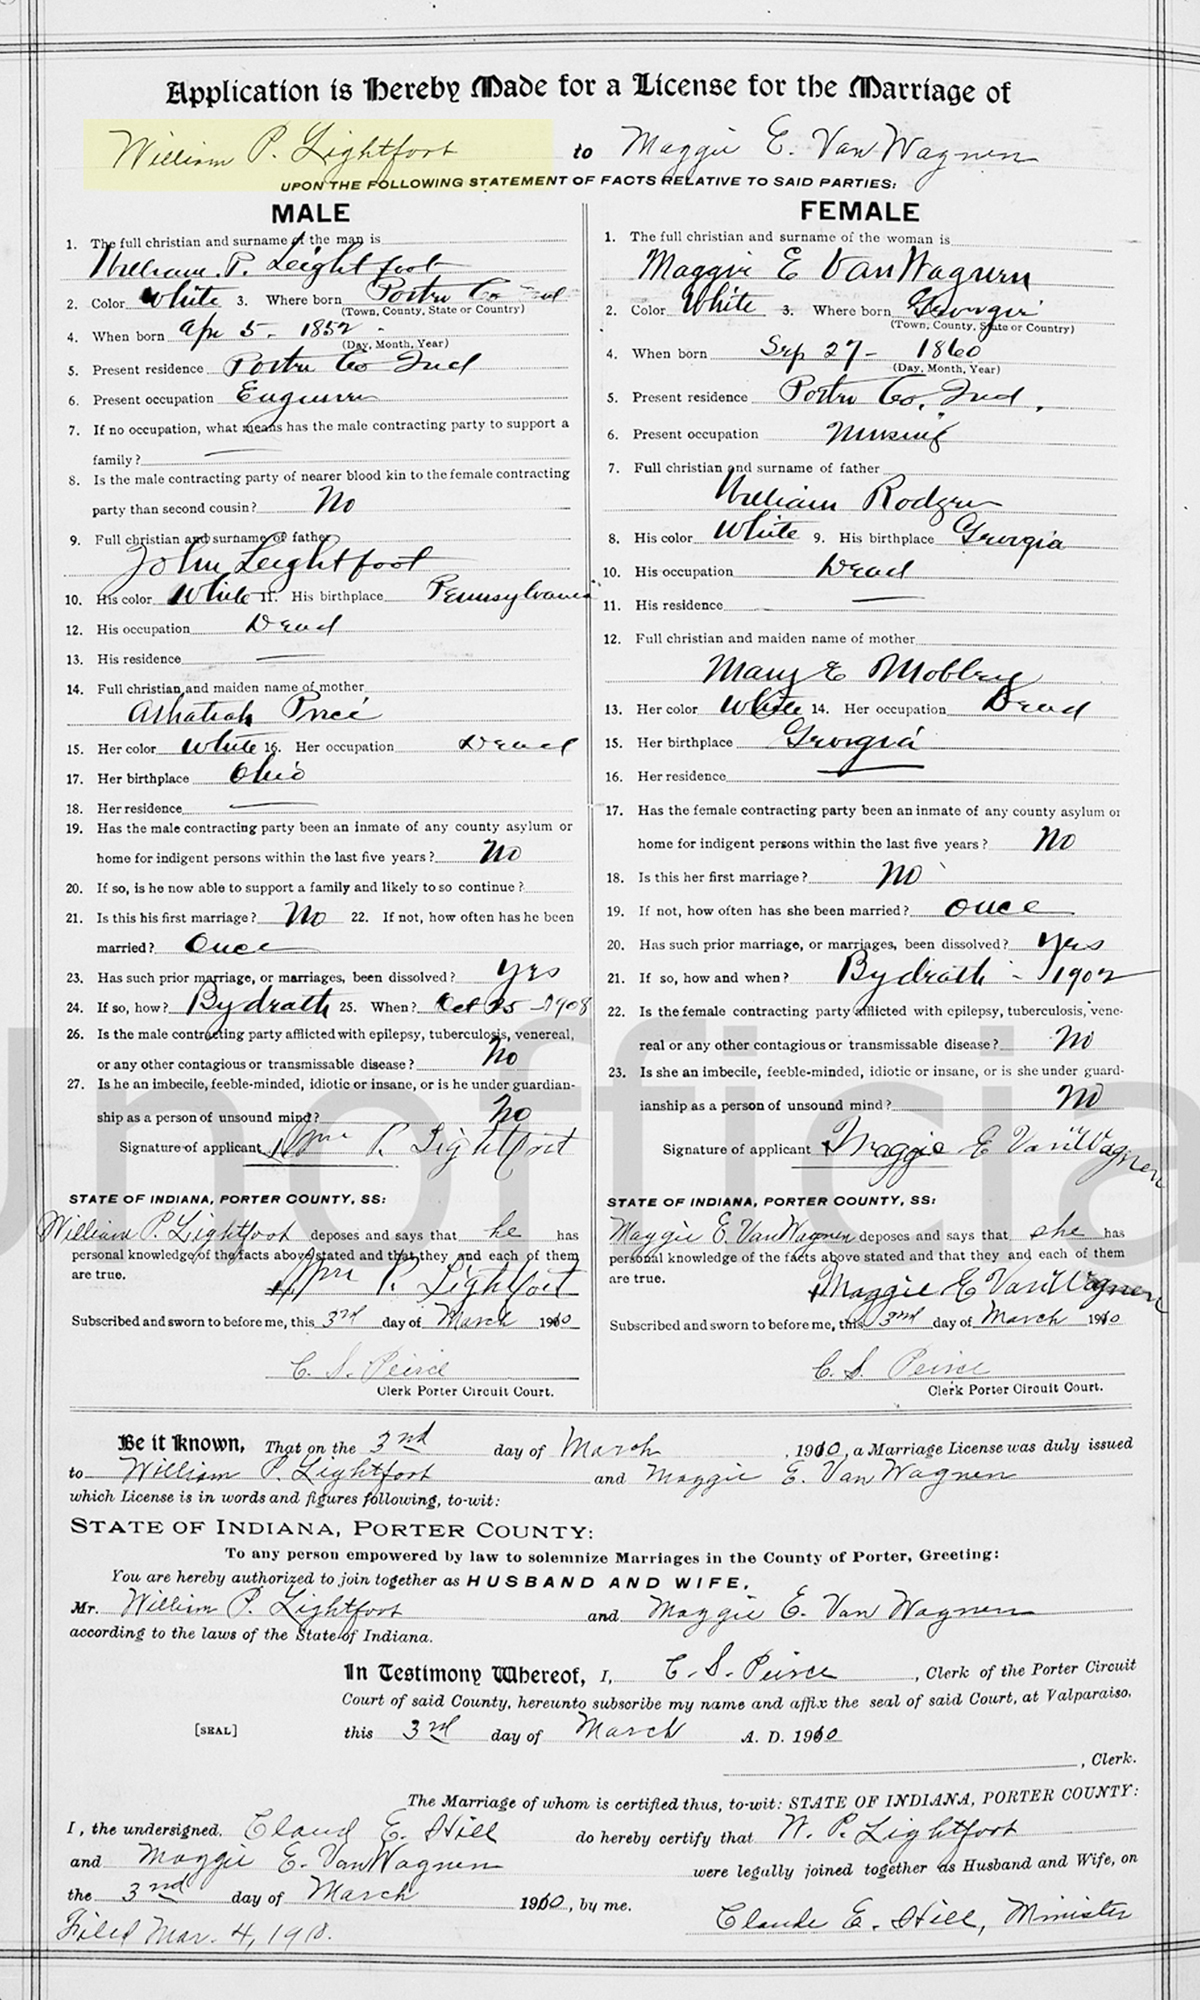 Application is Hereby Made for a License for the Marriage of
William P. Lightfoot to Maggie E. Van Wagnen
UPON THE FOLLOWING STATEMENT OF FACTS RELATIVE TO SAID PARTIES:
MALE
1. The full christian and surname of the man is
William. P. Leightfoot
2. Color White 3. Where born Porter Co Ind
(Town, County, State or Country)
4. When born Apr 5 - 1852 -
(Day, Month, Year)
5. Present residence Porter Co Ind
6. Present occupation Engineer
7. If no occupation, what means has the male contracting party to support a
family?
8. Is the male contracting party of nearer blood kin to the female contracting
party than second cousin? No
9. Full christian and surname of father
John Leightfoot
10. His color White 11. His birthplace Pennsylvania
12. His occupation Dead
13. His residence
14. Full christian and maiden name of mother
Price
15. Her color White 16. Her occupation Dead
17. Her birthplace Ohio
18. Her residence
19. Has the male contracting party been an inmate of any county asylum or
home for indigent persons within the last five years? No
20. If so, is he now able to support a family and likely to so continue?
21. Is this his first marriage? No 22. If not, how often has he been
married? Once
23. Has such prior marriage, or marriages, been dissolved? Yes
24. If so, how? By death 25. When? Oct 25 - 1908
26. Is the male contracting party afflicted with epilepsy, tuberculosis, venereal,
or any other contagious or transmissable disease? No
27. Is he an imbecile, feeble-minded, idiotic or insane, or is he under guardian-
ship as a person of unsound mind? No
Signature of applicant Wm P. Lightfoot
STATE OF INDIANA, PORTER COUNTY, SS:
William P. Lightfoot deposes and says that he has
personal knowledge of the facts above stated and that they and each of them
are true.
Wm P. Lightfoot
Subscribed and sworn to before me, this 3rd day of March 1910
C. S. Peirce
Clerk Porter Circuit Court.
FEMALE
1. The full christian and surname of the woman is
Maggie E Van Wagnen
2. Color White 3. Where born Georgia
(Town, County, State or Country)
4. When born Sep 27 - 1860
(Day, Month, Year)
5. Present residence Porter Co. Ind.
6. Present occupation Nursing
7. Full christian and surname of father
William Rodgers
8. His color White 9. His birthplace Georgia
10. His occupation Dead
11. His residence
12. Full christian and maiden name of mother
Mary E Mobley
13. Her color White 14. Her occupation Dead
15. Her birthplace Georgia
16. Her residence
17. Has the female contracting party been an inmate of any county asylum or
home for indigent persons within the last five years? No
18. Is this her first marriage? No
19. If not, how often has she been married? Once
20. Has such prior marriage, or marriages, been dissolved? Yes
21. If so, how and when? By death - 1902
22. Is the female contracting party afflicted with epilepsy, tuberculosis, vene-
real or any other contagious or transmissable disease? No
23. Is she an imbecile, feeble-minded, idiotic or insane, or is she under guard-
ianship as a person of unsound mind? No
Signature of applicant Maggie E Van Wagnen
STATE OF INDIANA, PORTER COUNTY, SS:
Maggie E. Van Wagnen deposes and says that she has
personal knowledge of the facts above stated and that they and each of them
are true.
Maggie E Van Wagnen
Subscribed and sworn to before me, this 3rd day of March 1910
C. S. Peirce
Clerk Porter Circuit Court.
unofficia
Be it known, That on the 3rd day of March, 1910, a Marriage License was duly issued
to William P. Lightfoot and Maggie E. Van Wagnen
which License is in words and figures following, to-wit:
STATE OF INDIANA, PORTER COUNTY:
To any person empowered by law to solemnize Marriages in the County of Porter, Greeting:
You are hereby authorized to join together as HUSBAND AND WIFE,
Mr. William P. Lightfoot and Maggie E. Van Wagnen
according to the laws of the State of Indiana.
In Testimony Whereof, I, C. S. Peirce, Clerk of the Porter Circuit
Court of said County, hereunto subscribe my name and affix the seal of said Court, at Valparaiso,
[SEAL] this 3rd day of March A. D. 1910
, Clerk.
The Marriage of whom is certified thus, to-wit: STATE OF INDIANA, PORTER COUNTY:
I, the undersigned. Claud E. Hill do hereby certify that W. P. Lightfoot
and Maggie E. Van Wagnen were legally joined together as Husband and Wife, on
the 3rd day of March 1910, by me.
Claude E. Hill, Minister
Filed Mar. 4, 1910.